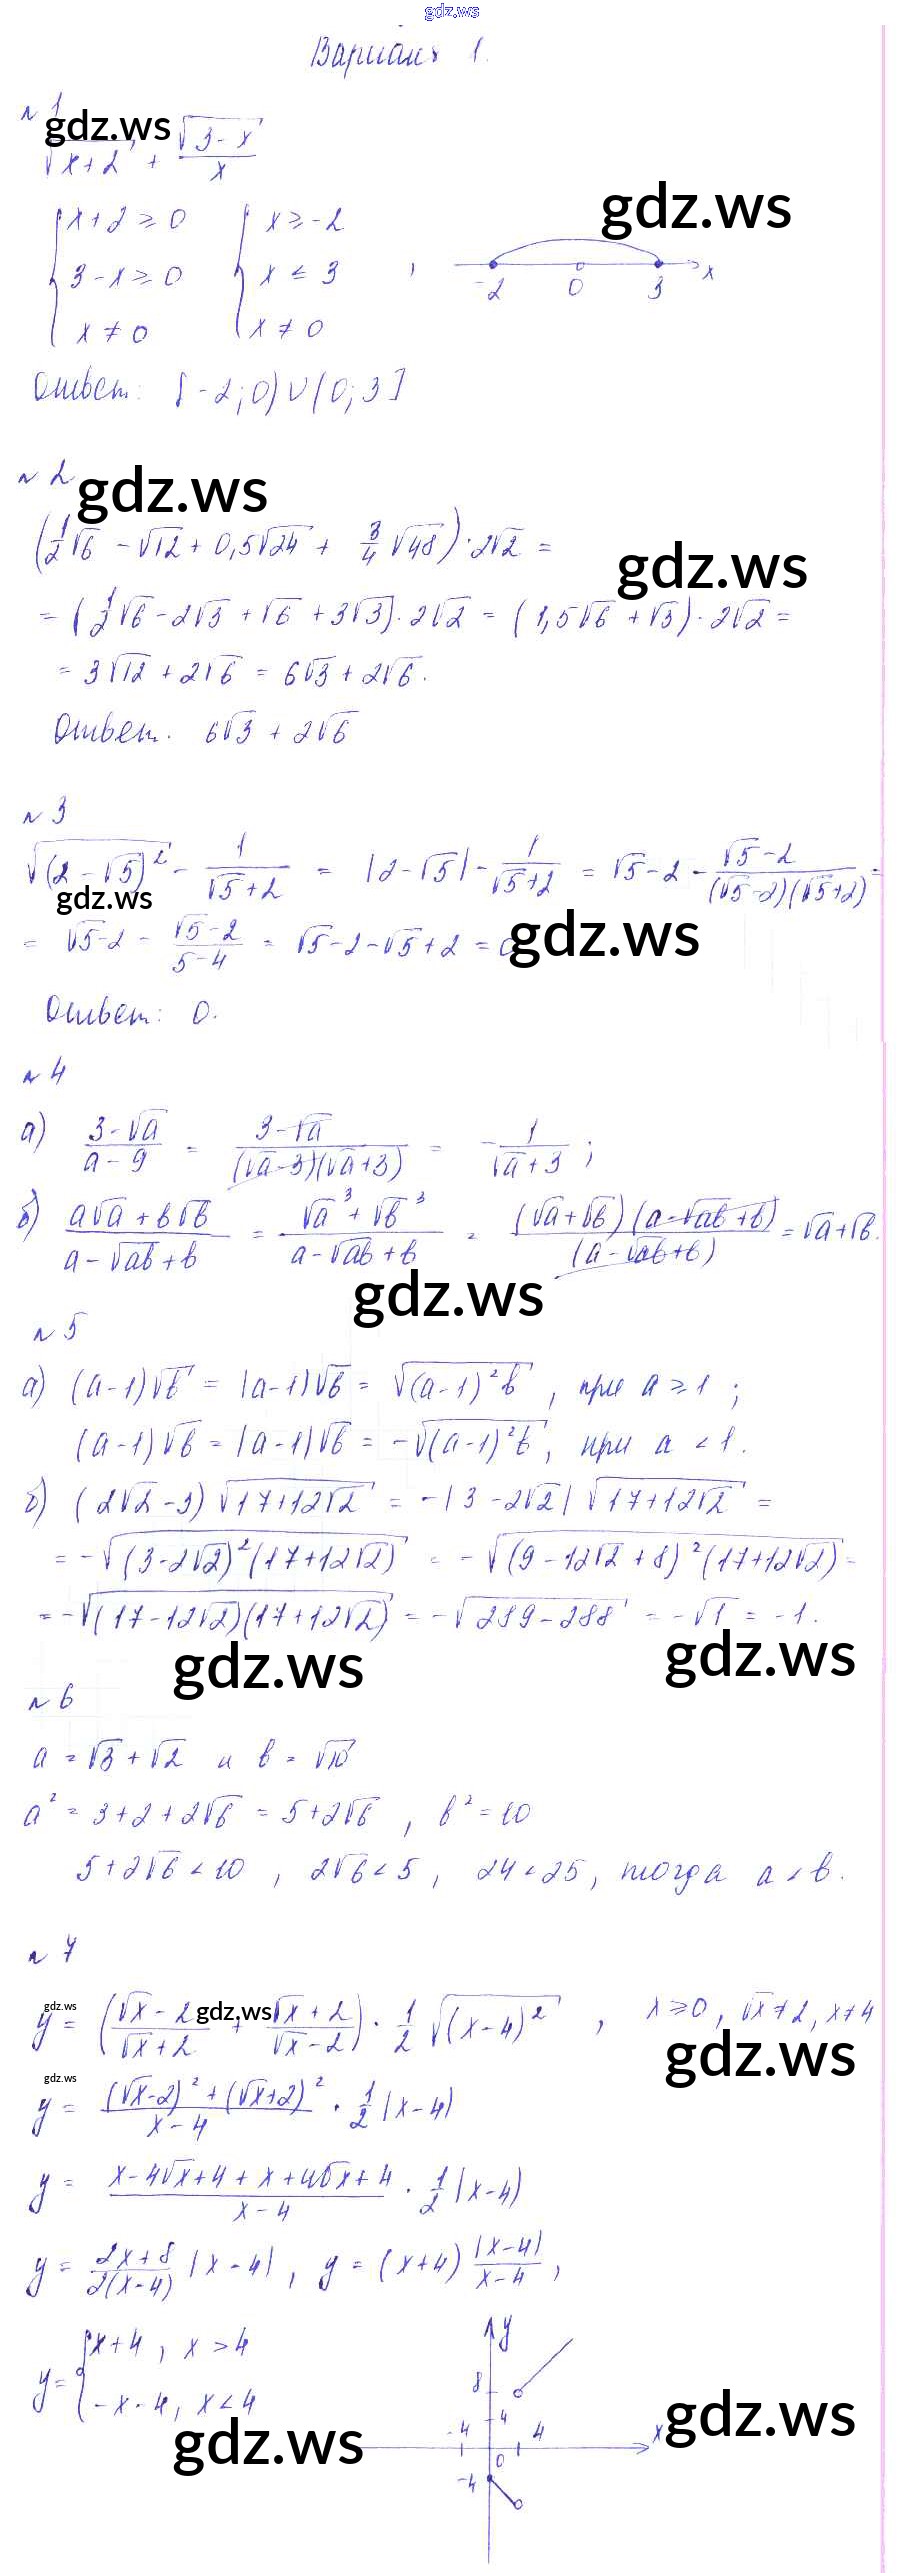 gdz.ws
Вариант 1.
№ 1
gdz.ws
√(x+2) + √(3-x)/x
gdz.ws
{ x+2 ≥ 0 { x ≥ -2
{ 3-x ≥ 0 { x ≤ 3 , -2 0 3 x
{ x ≠ 0 { x ≠ 0
Ответ: [-2; 0) ∪ (0; 3]
№ 2
gdz.ws
(1/2 √6 - √12 + 0,5√24 + 3/4 √48) · 2√2 =
gdz.ws
= (1/2 √6 - 2√3 + √6 + 3√3) · 2√2 = (1,5√6 + √3) · 2√2 =
= 3√12 + 2√6 = 6√3 + 2√6.
Ответ. 6√3 + 2√6
№ 3
√((2-√5)²) - 1/(√5+2) = |2-√5| - 1/(√5+2) = √5-2 - (√5-2)/((√5-2)(√5+2)) =
gdz.ws
= √5-2 - (√5-2)/(5-4) = √5-2-√5+2 = 0
gdz.ws
Ответ: 0.
№ 4
а) (3-√a)/(a-9) = (3-√a)/((√a-3)(√a+3)) = -1/(√a+3) ;
б) (a√a + b√b)/(a-√ab+b) = (√a³ + √b³)/(a-√ab+b) = ((√a+√b)(a-√ab+b))/(a-√ab+b) = √a+√b.
gdz.ws
№ 5
а) (a-1)√b = |a-1|√b = √((a-1)²b) , при a ≥ 1 ;
(a-1)√b = |a-1|√b = -√((a-1)²b) , при a < 1.
б) (2√2-3)√(17+12√2) = -|3-2√2|√(17+12√2) =
= -√((3-2√2)²(17+12√2)) = -√((9-12√2+8)²(17+12√2)) =
= -√((17-12√2)(17+12√2)) = -√(289-288) = -√1 = -1.
gdz.ws
gdz.ws
№ 6
a = √3+√2 и b = √10
a² = 3+2+2√6 = 5+2√6 , b² = 10
5+2√6 < 10 , 2√6 < 5 , 24 < 25, тогда a < b.
№ 7
gdz.ws
gdz.ws
y = ((√x-2)/(√x+2) + (√x+2)/(√x-2)) · 1/2 √((x-4)²) , x ≥ 0 , √x ≠ 2 , x ≠ 4
gdz.ws
gdz.ws
y = ((√x-2)² + (√x+2)²)/(x-4) · 1/2 |x-4|
y = (x-4√x+4+x+4√x+4)/(x-4) · 1/2 |x-4|
y = (2x+8)/(2(x-4)) |x-4| , y = (x+4) |x-4|/(x-4) ,
y = { x+4 , x > 4
{ -x-4 , x < 4
y
8
4
-4 4 x
0
-4
gdz.ws
gdz.ws